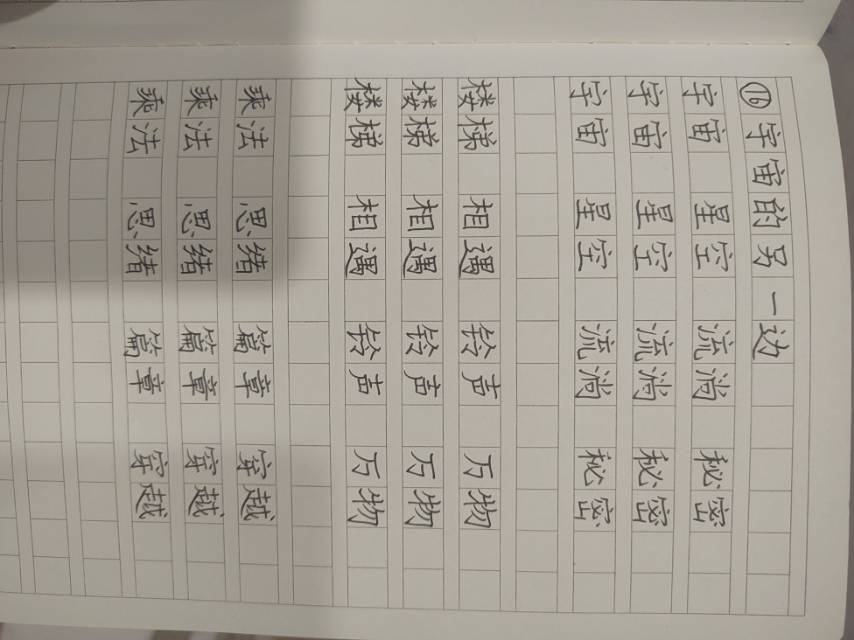 ⑯宇宙的另一边
宇宙 星空 流淌 秘密
宇宙 星空 流淌 秘密
宇宙 星空 流淌 秘密
楼梯 相遇 铃声 万物
楼梯 相遇 铃声 万物
楼梯 相遇 铃声 万物
乘法 思绪 篇章 穿越
乘法 思绪 篇章 穿越
乘法 思绪 篇章 穿越